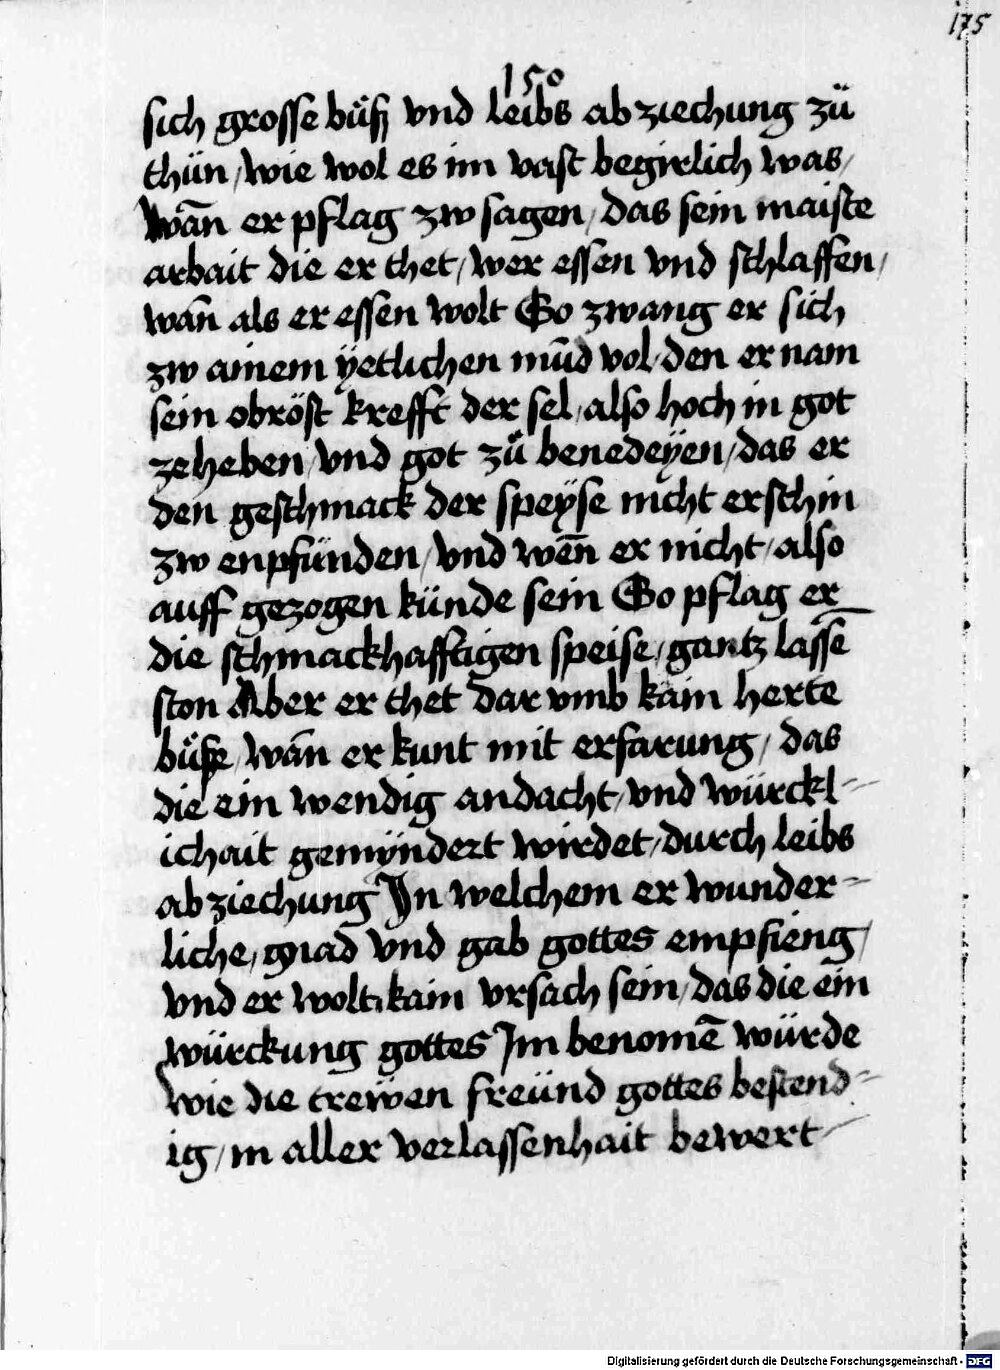 175
150
sich grosse bůß vnd leibs ab ziechung zů
thün / wie wol es im vast begirlich was /
wān er pflag zw sagen / das sein maiste
arbait die er thet / wer essen vnd schlaffen /
wān als er essen wolt So zwang er sich
zw ainem ÿetlichen mūd vol den er nam
sein obröst krefft der sel / also hoch in got
ze heben / vnd got zů benedeÿen / das er
den geschmack der speÿse nicht erschin
zw enpfünden / vnd wēn er nicht / also
auff gezogen künde sein So pflag er
die schmackhafftigen speise / gantz lassē
ston Aber er thet dar vmb kain herte
bůße / wān er kunt mit erfarung / das
die ein wendig andacht / vnd würckl-
ichait gemÿndert wirdet / durch leibs
ab ziechung In welchem er wunder-
liche / gnad vnd gab gottes empfieng /
vnd er wolt kain vrsach sein / das die ein
würckung gottes Im benomē würde
wie die trewen freünd gottes bestend-
ig / in aller verlassenhait bewert
Digitalisierung gefördert durch die Deutsche Forschungsgemeinschaft - DFG